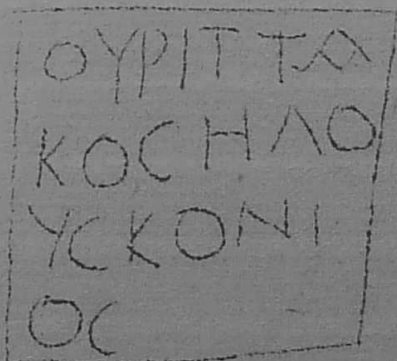 ΟΥΡΙΤΤΑ
ΚΟϹΗΛΟ
ΥϹΚΟΝΙ
ΟϹ